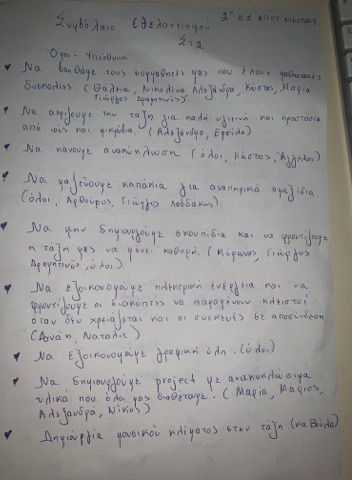 Συμβόλαιο Εθελοντισμού 2ο ΔΣ ΑΓΙΟΥ ΝΙΚΟΛΑΟΥ
ΣΤ2
Όροι - Υπεύθυνοι
Να βοηθάμε τους συμμαθητές μας που έχουν μαθησιακές
δυσκολίες. (Θάλεια, Νικολίνα Αλεξάνδρα, Κώστας, Μαρία
Γιώργος Δραμητινός)
Να ανοίγουμε την τάξη για καλή υγιεινή και προστασία
από ιούς και μικρόβια. (Αλεξάνδρα, Εριόλα)
Να κάνουμε ανακύκλωση (όλοι, Κώστας, Άγγελος)
Να μαζεύουμε καπάκια για αναπηρικά αμαξίδια
(όλοι, Αρθούρος, Γιώργος Λουδάκης)
Να μην δημιουργούμε σκουπίδια και να φροντίζουμε
η τάξη μας να μένει καθαρή. (Μύρωνας, Γιώργος
Δραμητινός, όλοι)
Να εξοικονομούμε ηλεκτρική ενέργεια και να
φροντίζουμε οι διακόπτες να παραμένουν κλειστοί
όταν δεν χρειάζεται και οι συσκευές σε αποσύνδεση.
(Δανάη, Ναταλία)
Να εξοικονομούμε γραφική ύλη. (όλοι)
Να δημιουργούμε project με ανακυκλώσιμα
υλικά που όλοι μας διαθέτουμε. (Μαρία, Μάριος,
Αλεξάνδρα, Νίκος)
Δημιουργία μουσικού κλίματος στην τάξη (κα Βούλα)